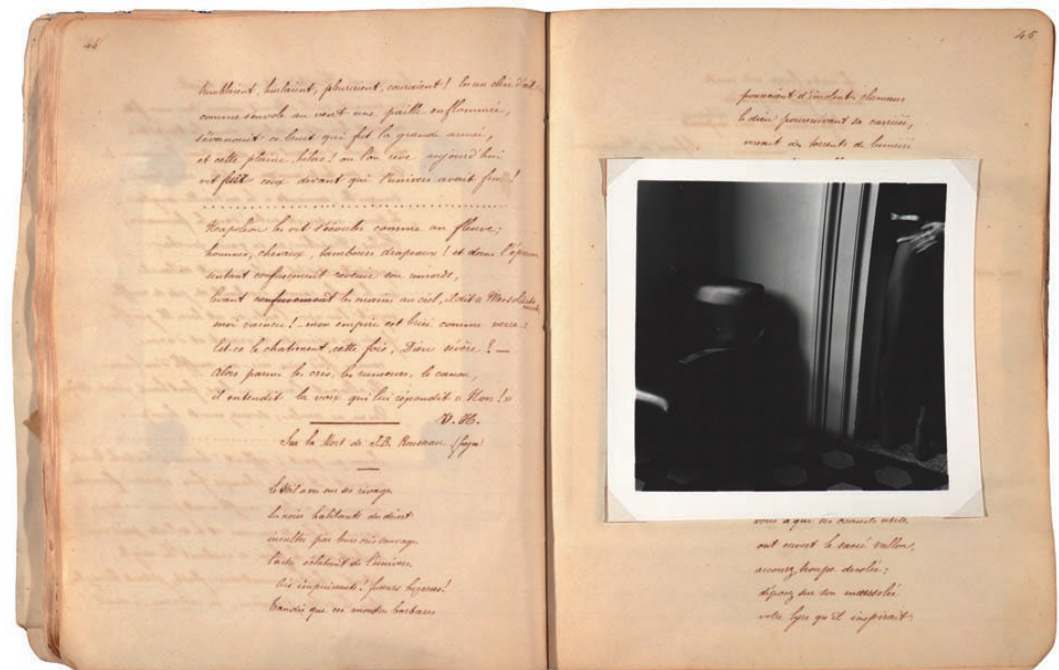 44
tremblaient, hurlaient, pleuraient, couraient! En un clin d'œil
comme s'envole au vent une paille enflammée,
s'évanouit ce bruit qui fut la grande armée,
et cette plaine, hélas! où l'on rêve aujourd'hui
vit fuir ceux devant qui l'univers avait fui!
Napoléon les vit s'écouler comme un fleuve;
hommes, chevaux, tambours drapeaux! et dans l'épreuve
sentant confusément revenir son remords,
levant confusément les mains au ciel, il dit « Mes soldats
moi vaincu! — mon empire est brisé comme verre.
Est-ce le chatiment cette fois, Dieu sévère? —
Alors parmi les cris, les rumeurs, le canon,
il entendit la voix qui lui répondit « Non! »
V. H.
Sur la Mort de J.B. Rousseau
le Nil a vu sur ses rivages
les noirs habitants du désert
insulter par leurs cris sauvages
l'astre éclatant de l'univers.
Cris impuissants! fureurs bizarres!
Tandis que ces monstres barbares
45
poussaient d'insolentes clameurs
le dieu poursuivant sa carrière,
versant des torrents de lumière
vous à que ses
ont ouvert le sacré vallon,
accourez, troupe désolée;
déposez sur son mausolée
votre lyre qu'il inspirait;